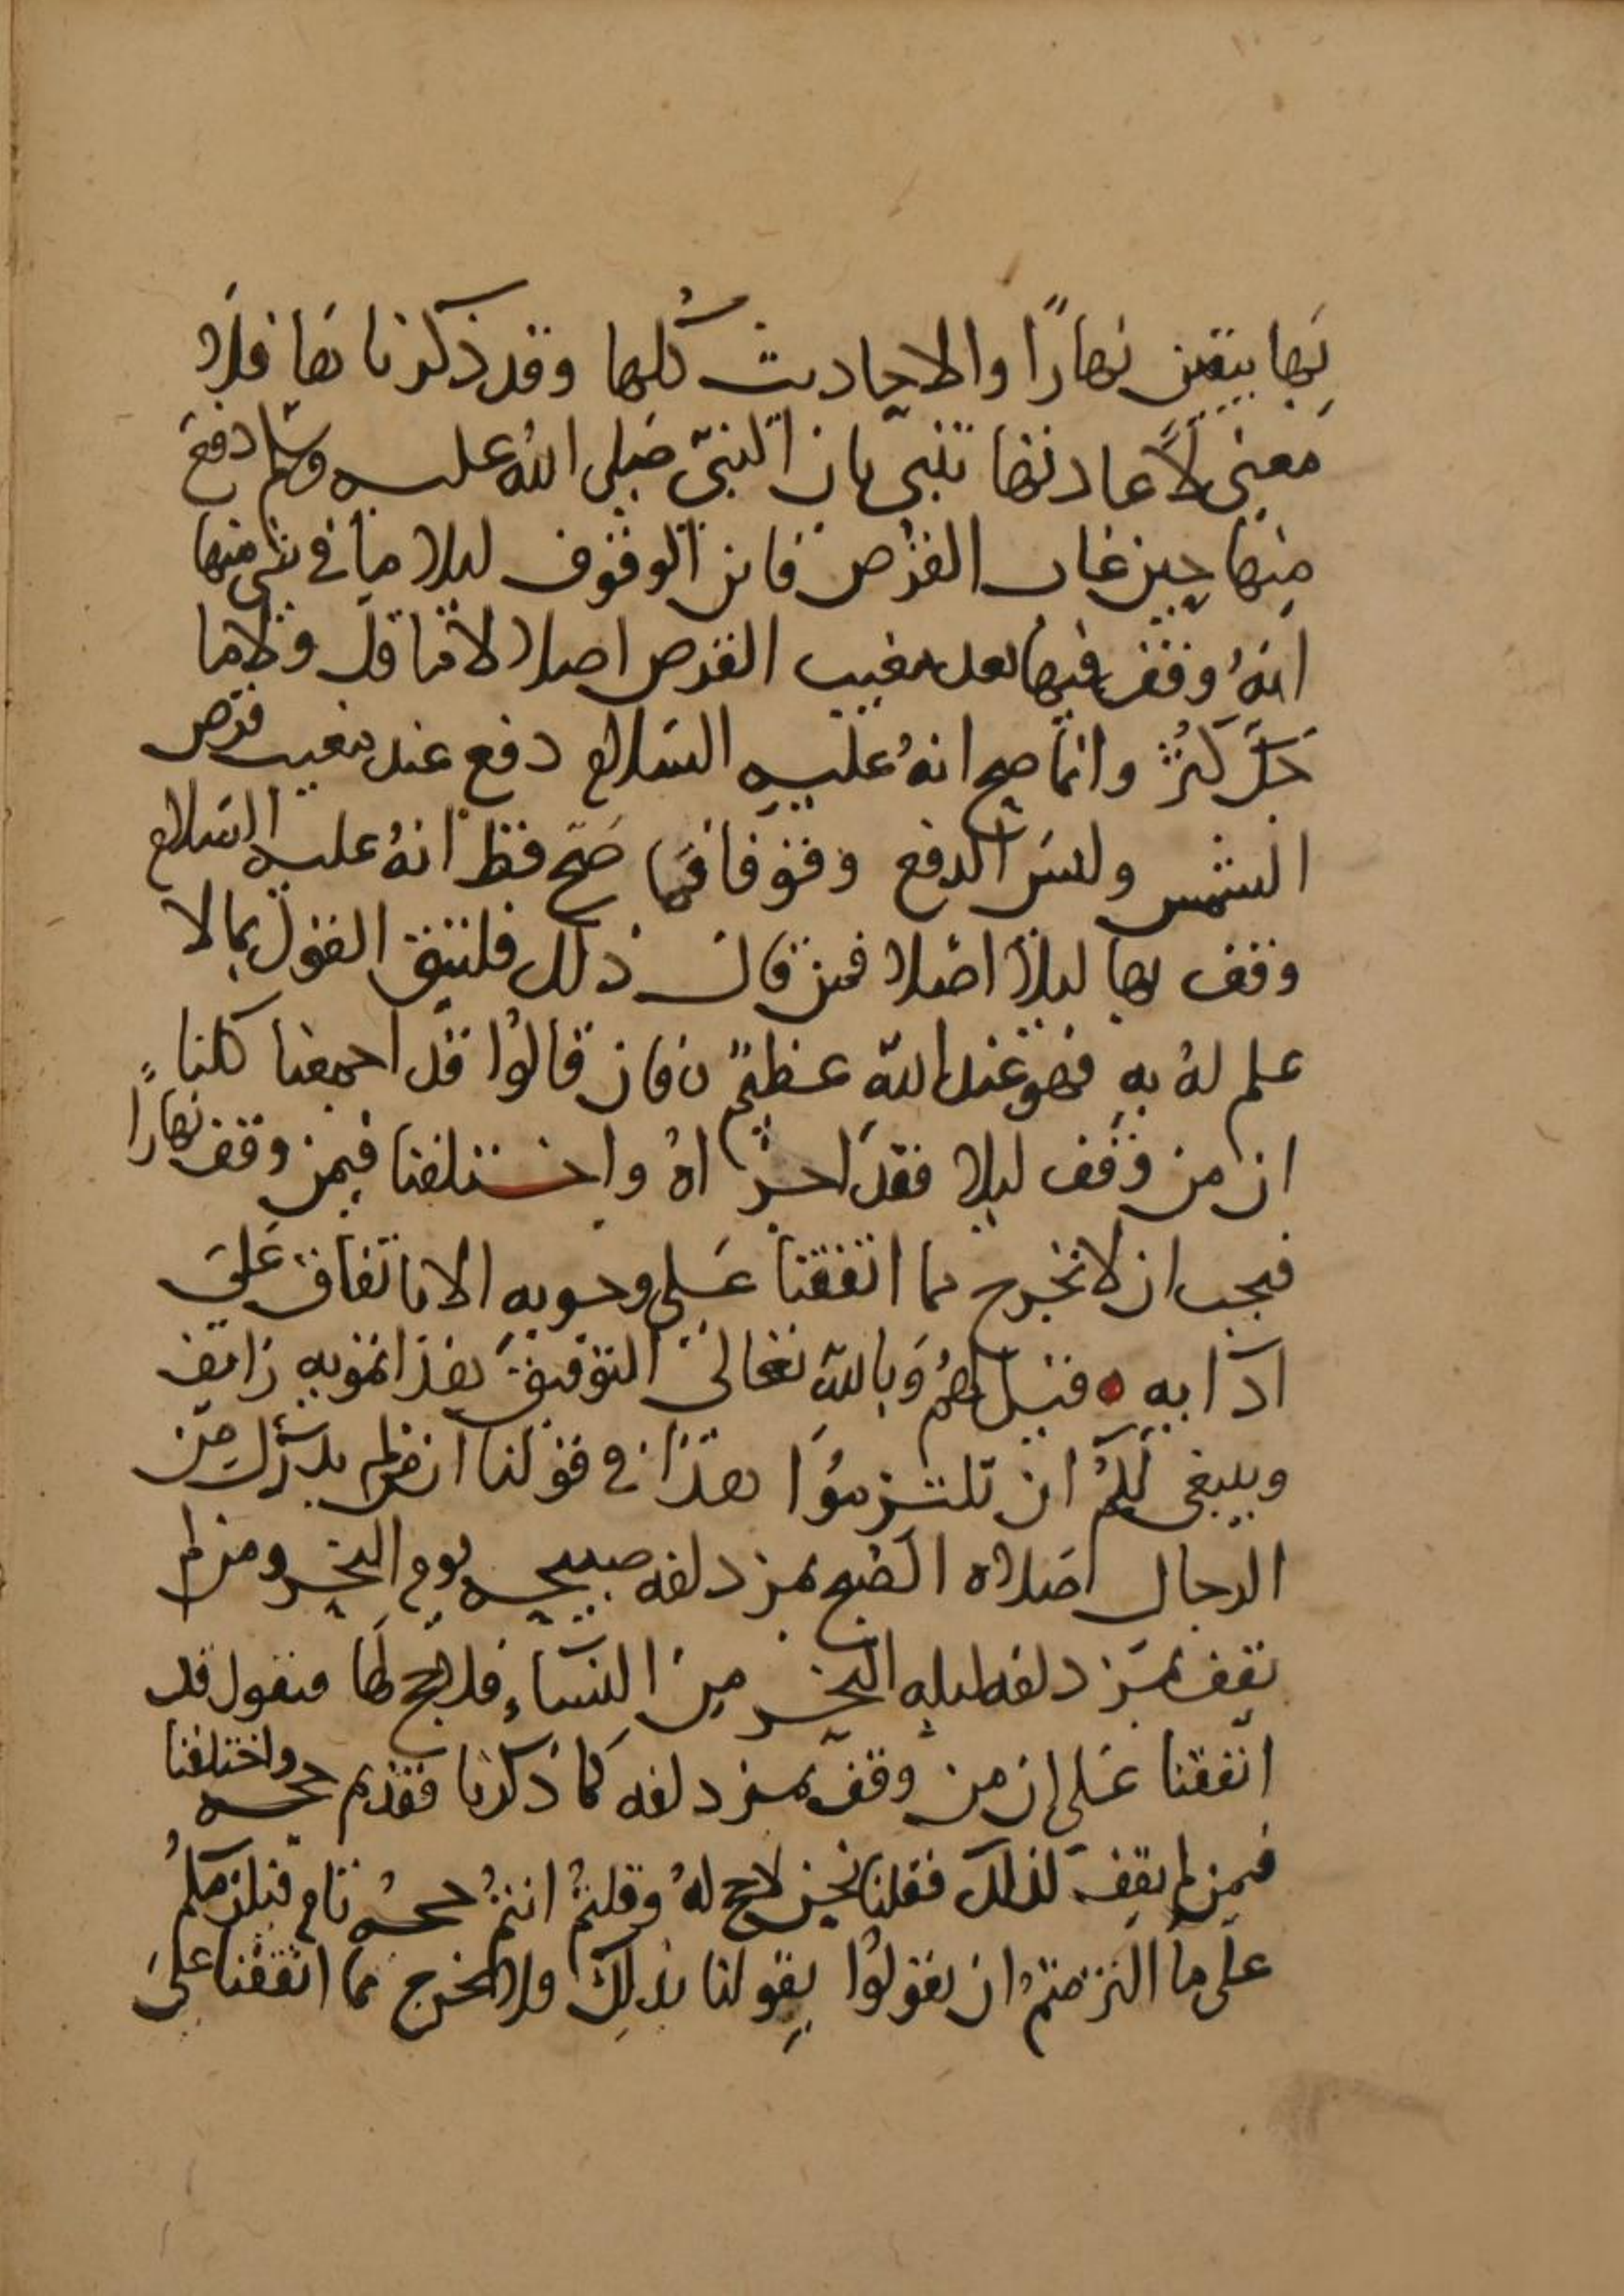 بها بيقين نهارًا والاحاديث كلها وقد ذكرناها فلا
معنى لاعادتها تنبي بان النبي صلى الله عليه وسلم دفع
منها حين غاب القرص فاين الوقوف ليلا ما في شي منها
انهُ وقف فيها بعد مغيب القرص اصلا لا ما قل ولا ما
جلَّ كثرُ وانما صح انهُ عليه السلام دفع عند مغيب قرص
الشمس وليس الدفع وقوفا فما صح قط انهُ عليه السلام
وقف بها ليلا اصلا فمن قال ذلك فليتق القول بما لا
علم لهُ به فهو عند الله عظيم فان قالوا قد اجمعنا كلنا
ان من وقف ليلا فقد اجزاهُ واختلفنا فيمن وقف نهارًا
فيجب ان لا نخرج مما اتفقنا على وجوبه الا باتفاق على
ادايه ٥ قيل لهم وبالله تعالى التوفيق هذا تمويه زايف
وينبغي لكم ان تلتزموا هذا في قولنا ان من لم يدرك من
الرجال صلاه الصبح بمزدلفه صبيحه يوم النحر ومن لم
يقف بمزدلفه ليله النحر من النساء فلا حج لها فنقول قد
اتفقنا على ان من وقف بمزدلفه كما ذكرنا فقد تم حجه واختلفنا
فيمن لم يقف كذلك فقلنا نحن لا حج لهُ وقلتم انتم حجهُ تام فيلزمكم
على ما التزمتم ان تقولوا بقولنا بذلك ولا نخرج مما اتفقنا على